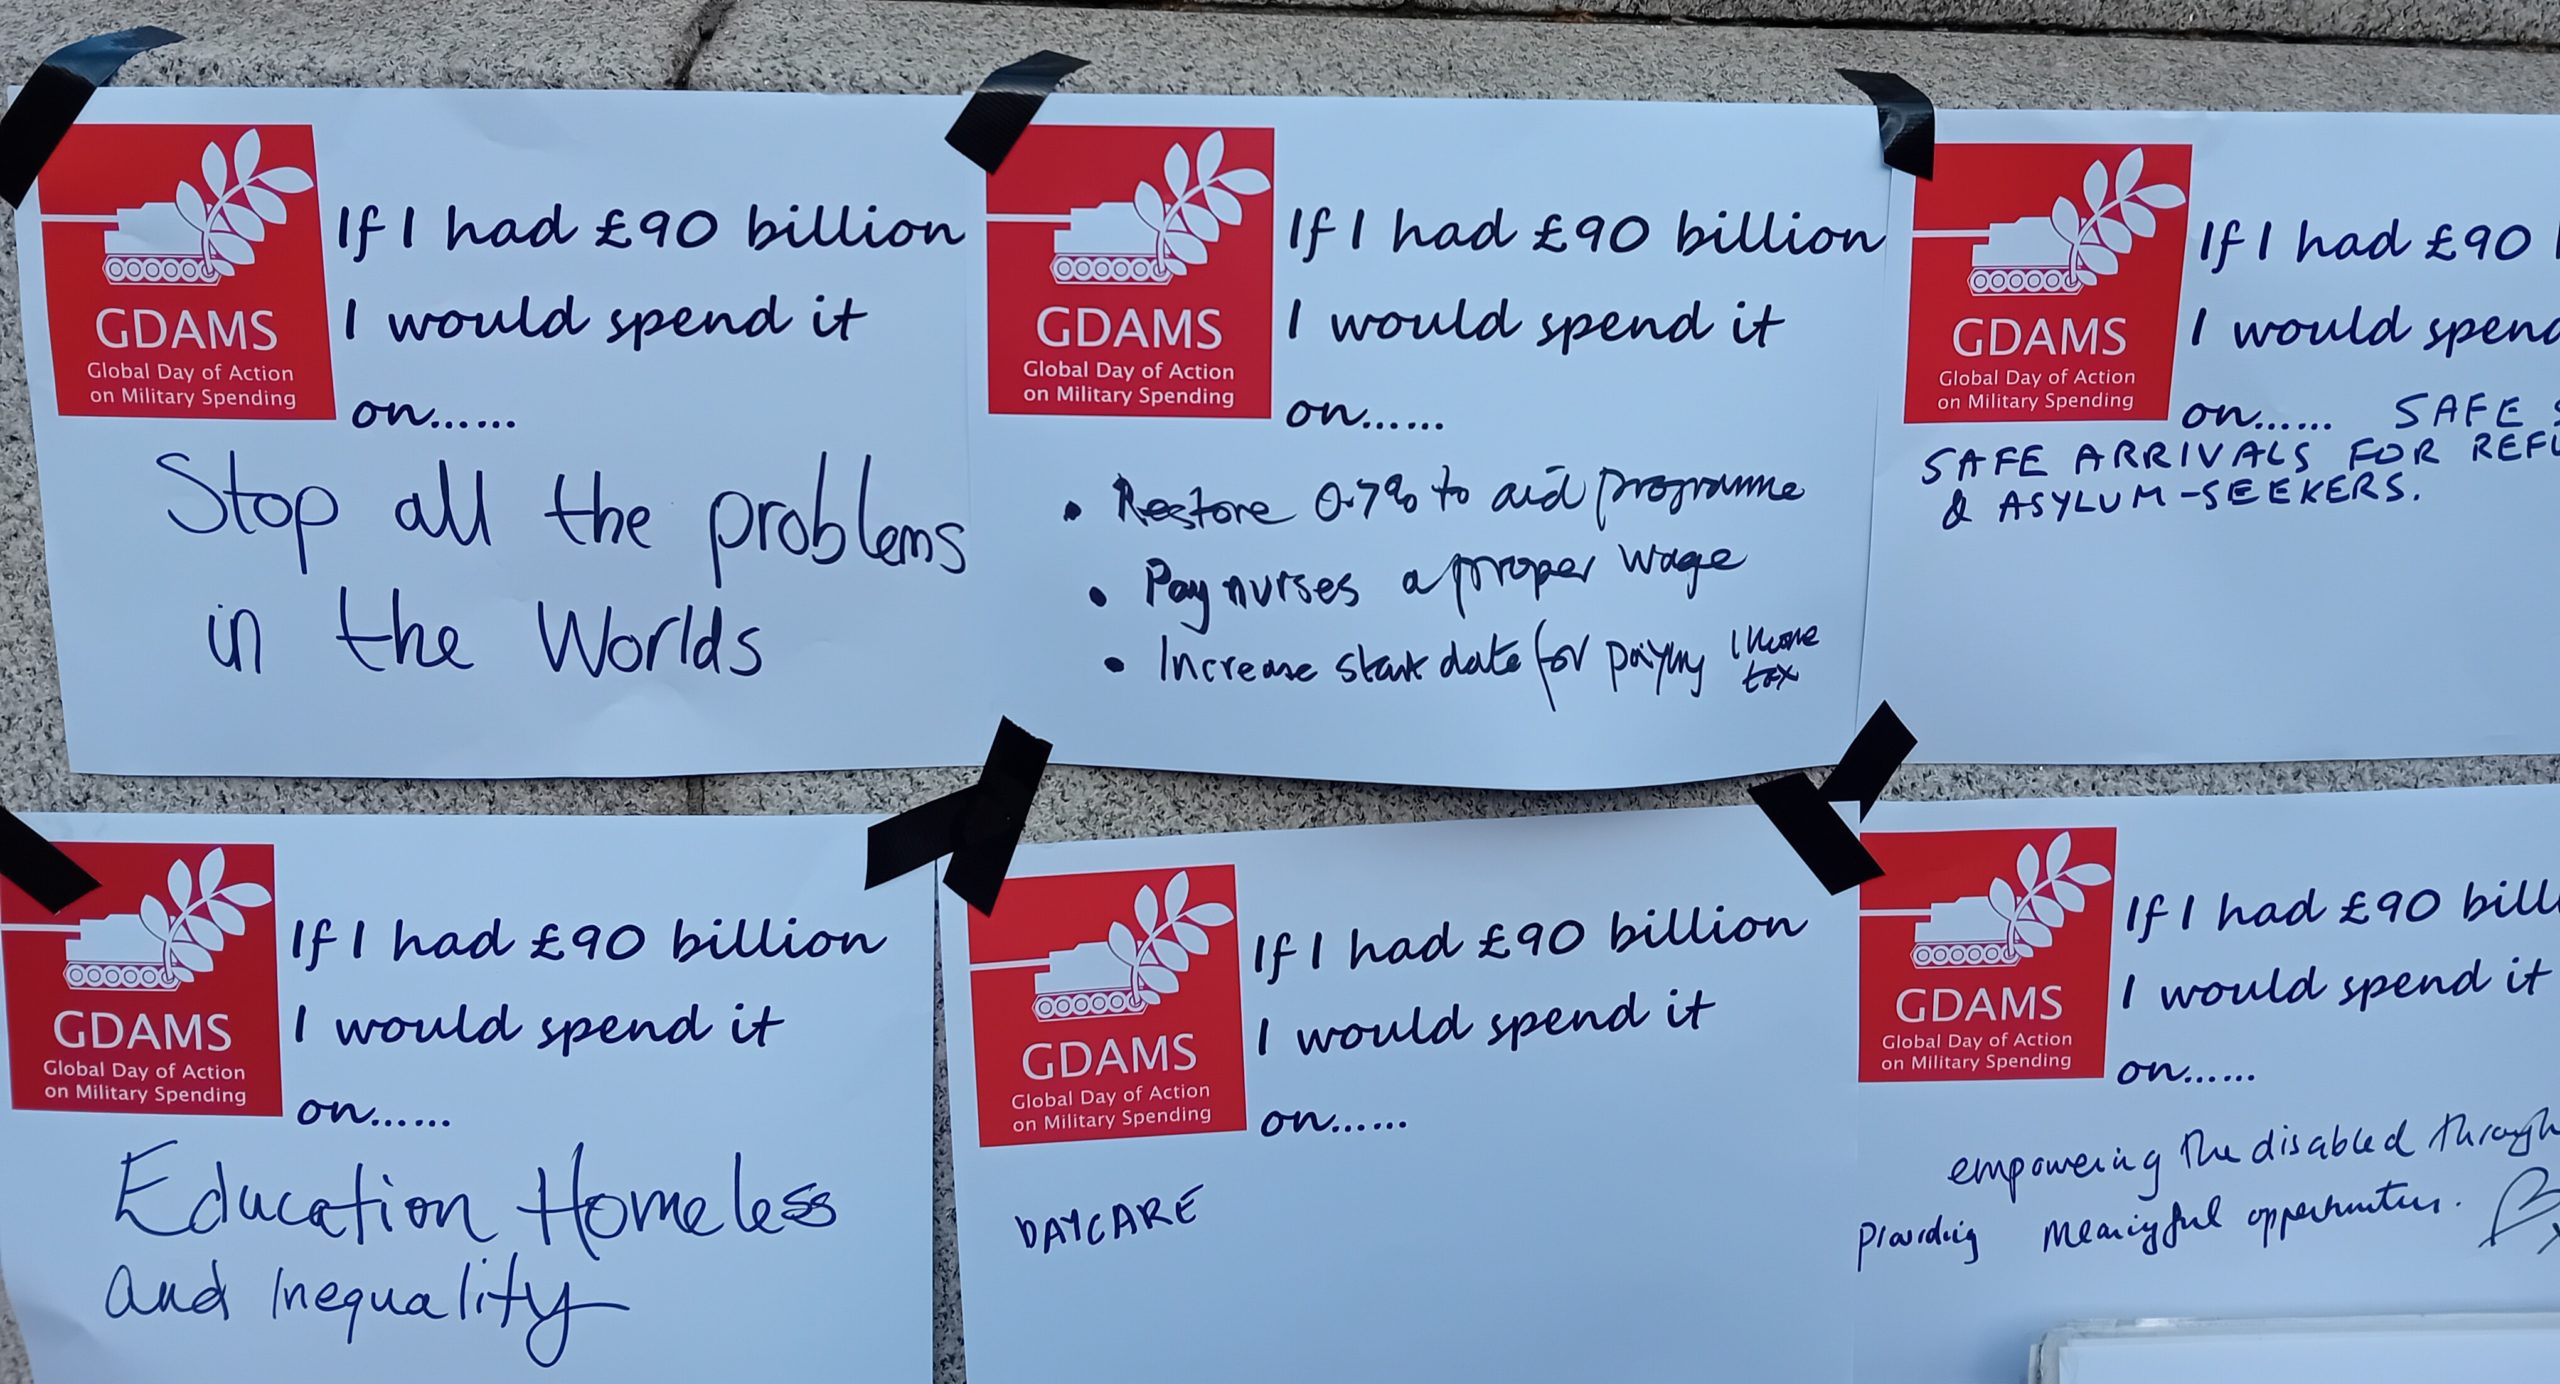 GDAMS
Global Day of Action
on Military Spending
If I had £90 billion
I would spend it
on......
Stop all the problems
in the Worlds
GDAMS
Global Day of Action
on Military Spending
If I had £90 billion
I would spend it
on......
• Restore 0.7% to aid programme
• Pay nurses a proper wage
• Increase start date for paying Income
tax
GDAMS
Global Day of Action
on Military Spending
If I had £90
I would spend
on...... SAFE
SAFE ARRIVALS FOR
& ASYLUM-SEEKERS.
GDAMS
Global Day of Action
on Military Spending
If I had £90 billion
I would spend it
on......
Education Homeless
and Inequality
GDAMS
Global Day of Action
on Military Spending
If I had £90 billion
I would spend it
on......
DAYCARE
GDAMS
Global Day of Action
on Military Spending
If I had £90 bill
I would spend it
on......
empowering the disabled through
providing meaningful opportunities.